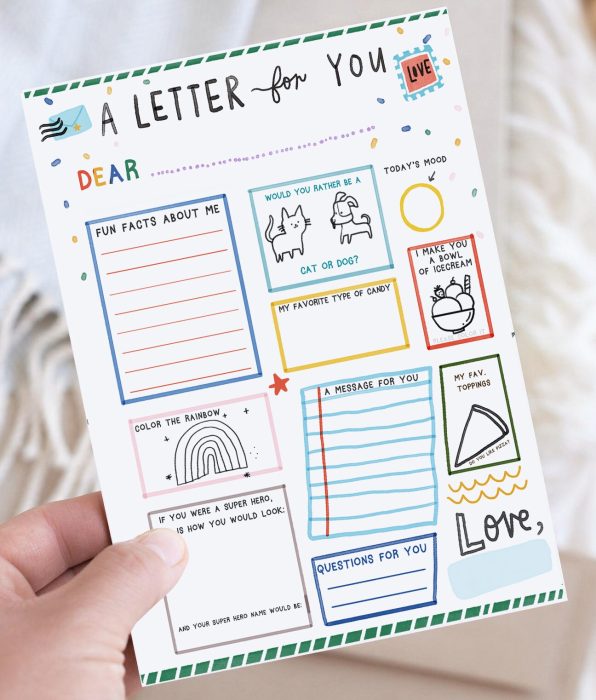 A LETTER for YOU
LOVE
DEAR
TODAY'S MOOD
FUN FACTS ABOUT ME
WOULD YOU RATHER BE A
CAT OR DOG?
I MAKE YOU
A BOWL
OF ICECREAM
MY FAVORITE TYPE OF CANDY
A MESSAGE FOR YOU
MY FAV.
TOPPINGS
DO YOU LIKE PIZZA?
COLOR THE RAINBOW
IF YOU WERE A SUPER HERO,
IS HOW YOU WOULD LOOK:
AND YOUR SUPER HERO NAME WOULD BE:
QUESTIONS FOR YOU
LOVE,